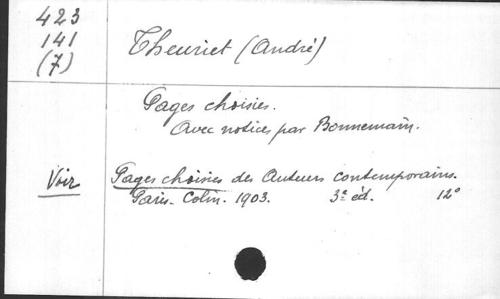 423
141
(7)
Theuriet (André)
Pages choisies.
Avec notices par Bonnemain.
Voir Pages choisies des Auteurs contemporains.
Paris. Colin. 1903. 3e éd. 12°